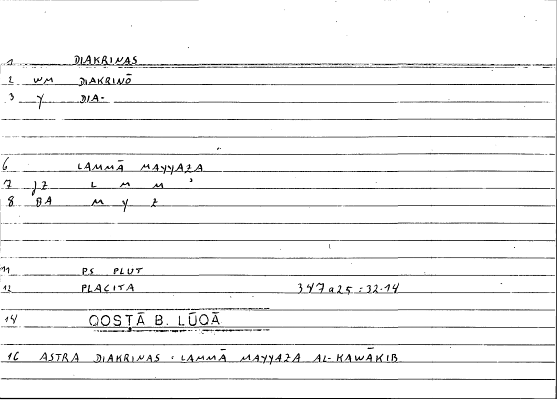 1 DIAKRINAS
2 WM DIAKRINŌ
3 Y DIA-
6 LAMMĀ MAYYAZA
7 JZ L M M
8 BA M Y Z
11 PS PLUT
12 PLACITA 347a25 : 32.14
14 QOSṬĀ B. LŪQĀ
16 ASTRA DIAKRINAS : LAMMĀ MAYYAZA AL-KAWĀKIB